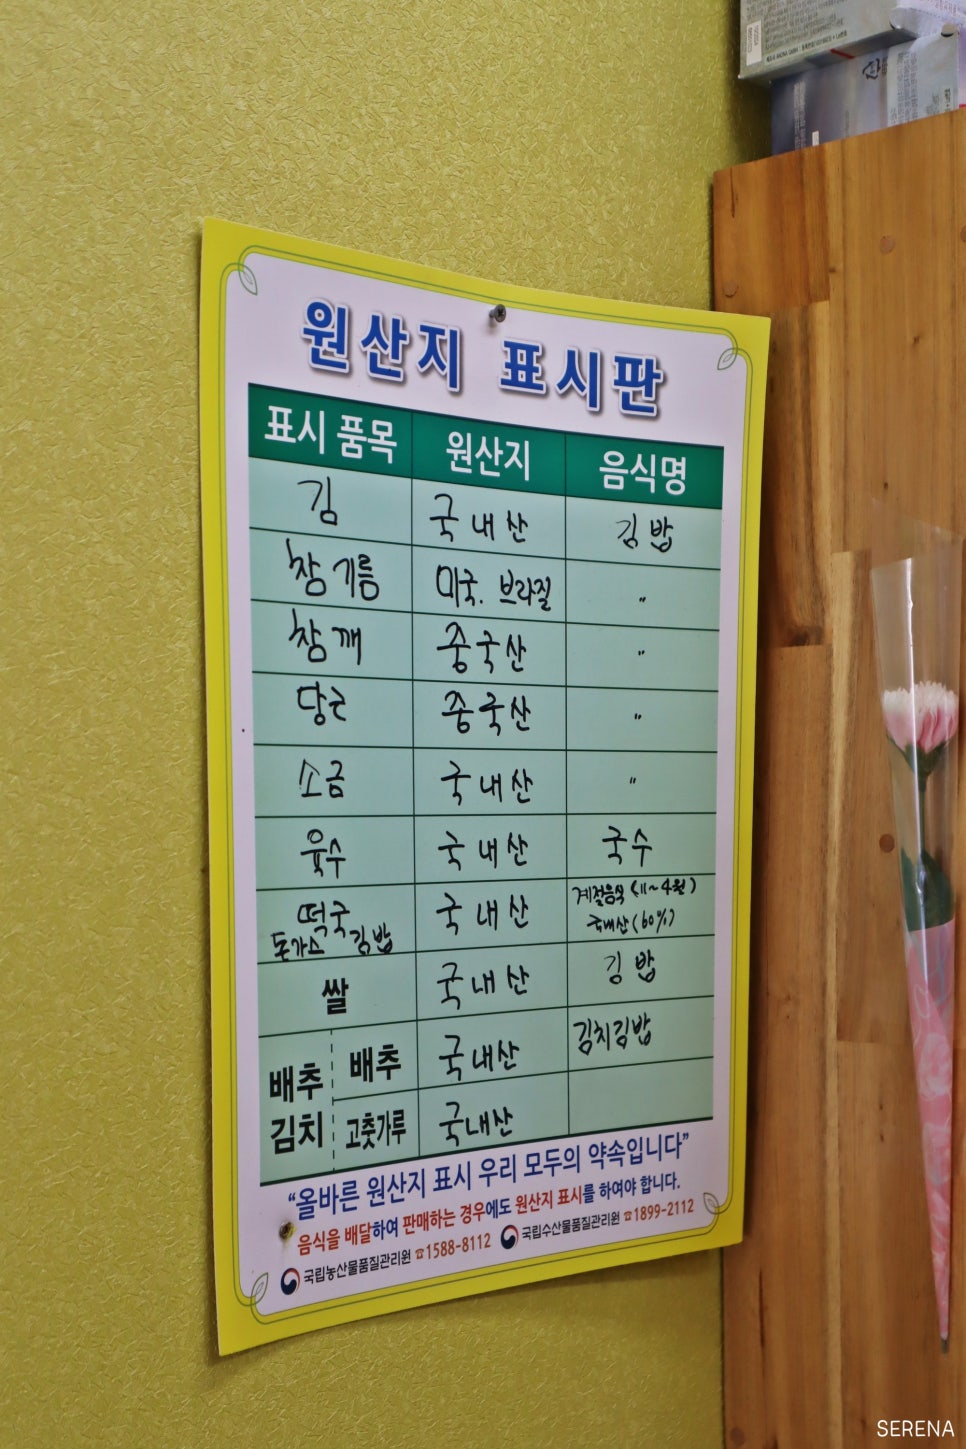 원산지 표시판
표시 품목 원산지 음식명
김 국내산 김밥
참기름 미국. 브라질 〃
참깨 중국산 〃
당근 중국산 〃
소금 국내산 〃
육수 국내산 국수
떡국 국내산 계절음식 (11~4월)
돈가스 김밥 국내산(60%)
쌀 국내산 김밥
배추김치 배추 국내산 김치김밥
고춧가루 국내산
“올바른 원산지 표시 우리 모두의 약속입니다”
음식을 배달하여 판매하는 경우에도 원산지 표시를 하여야 합니다.
국립농산물품질관리원 ☎1588-8112 국립수산물품질관리원 ☎1899-2112
SERENA